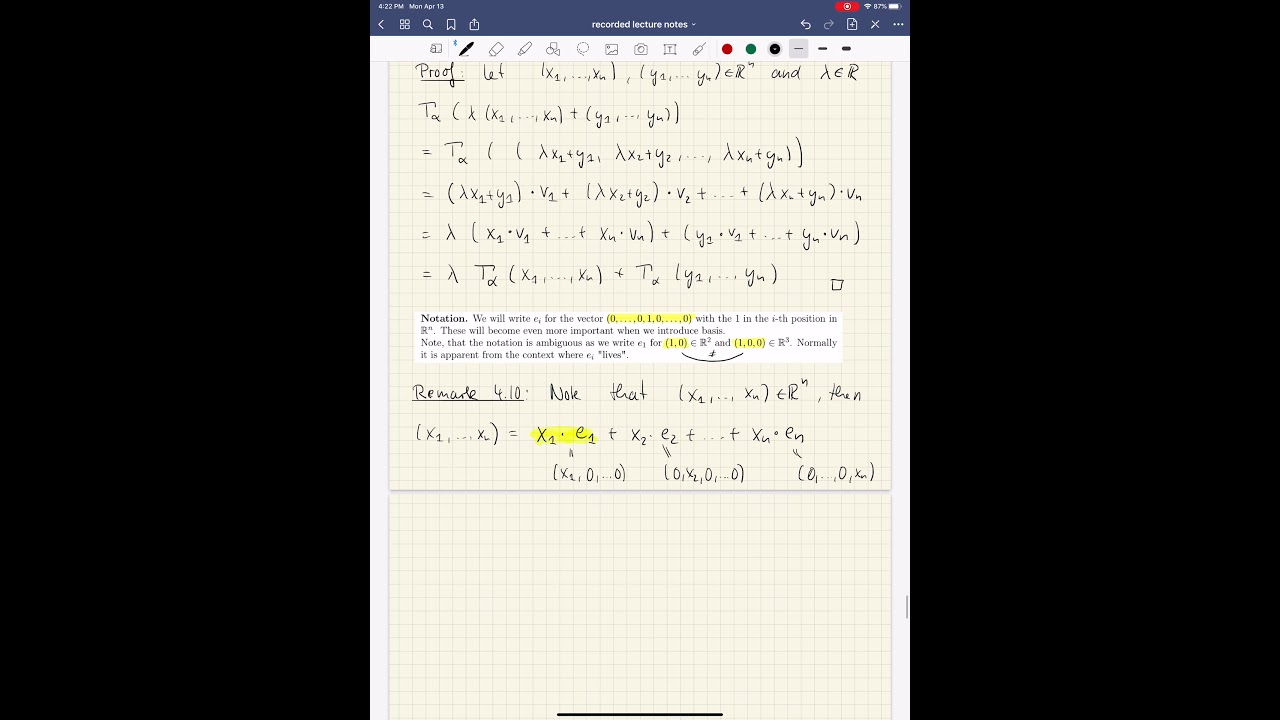 4:22 PM Mon Apr 13 87%
recorded lecture notes
Proof: Let (x₁,...,xₙ), (y₁,...yₙ)∈ℝⁿ and λ∈ℝ
T_α (λ(x₁,...,xₙ)+(y₁,...yₙ))
= T_α ((λx₁+y₁, λx₂+y₂,..., λxₙ+yₙ))
= (λx₁+y₁)·v₁+ (λx₂+y₂)·v₂+...+ (λxₙ+yₙ)·vₙ
= λ (x₁·v₁ +...+ xₙ·vₙ) + (y₁·v₁+...+ yₙ·vₙ)
= λ T_α (x₁,...,xₙ) + T_α (y₁,...,yₙ) □
Notation. We will write eᵢ for the vector (0,...,0,1,0,...,0) with the 1 in the i-th position in
ℝⁿ. These will become even more important when we introduce basis.
Note, that the notation is ambiguous as we write e₁ for (1,0) ∈ ℝ² and (1,0,0) ∈ ℝ³. Normally
it is apparent from the context where eᵢ "lives". ≠
Remark 4.10: Note that (x₁,..., xₙ)∈ℝⁿ, then
(x₁,...xₙ) = x₁·e₁ + x₂·e₂ +...+ xₙ·eₙ
= = =
(x₁,0,...0) (0,x₂,0,...0) (0,...,0,xₙ)